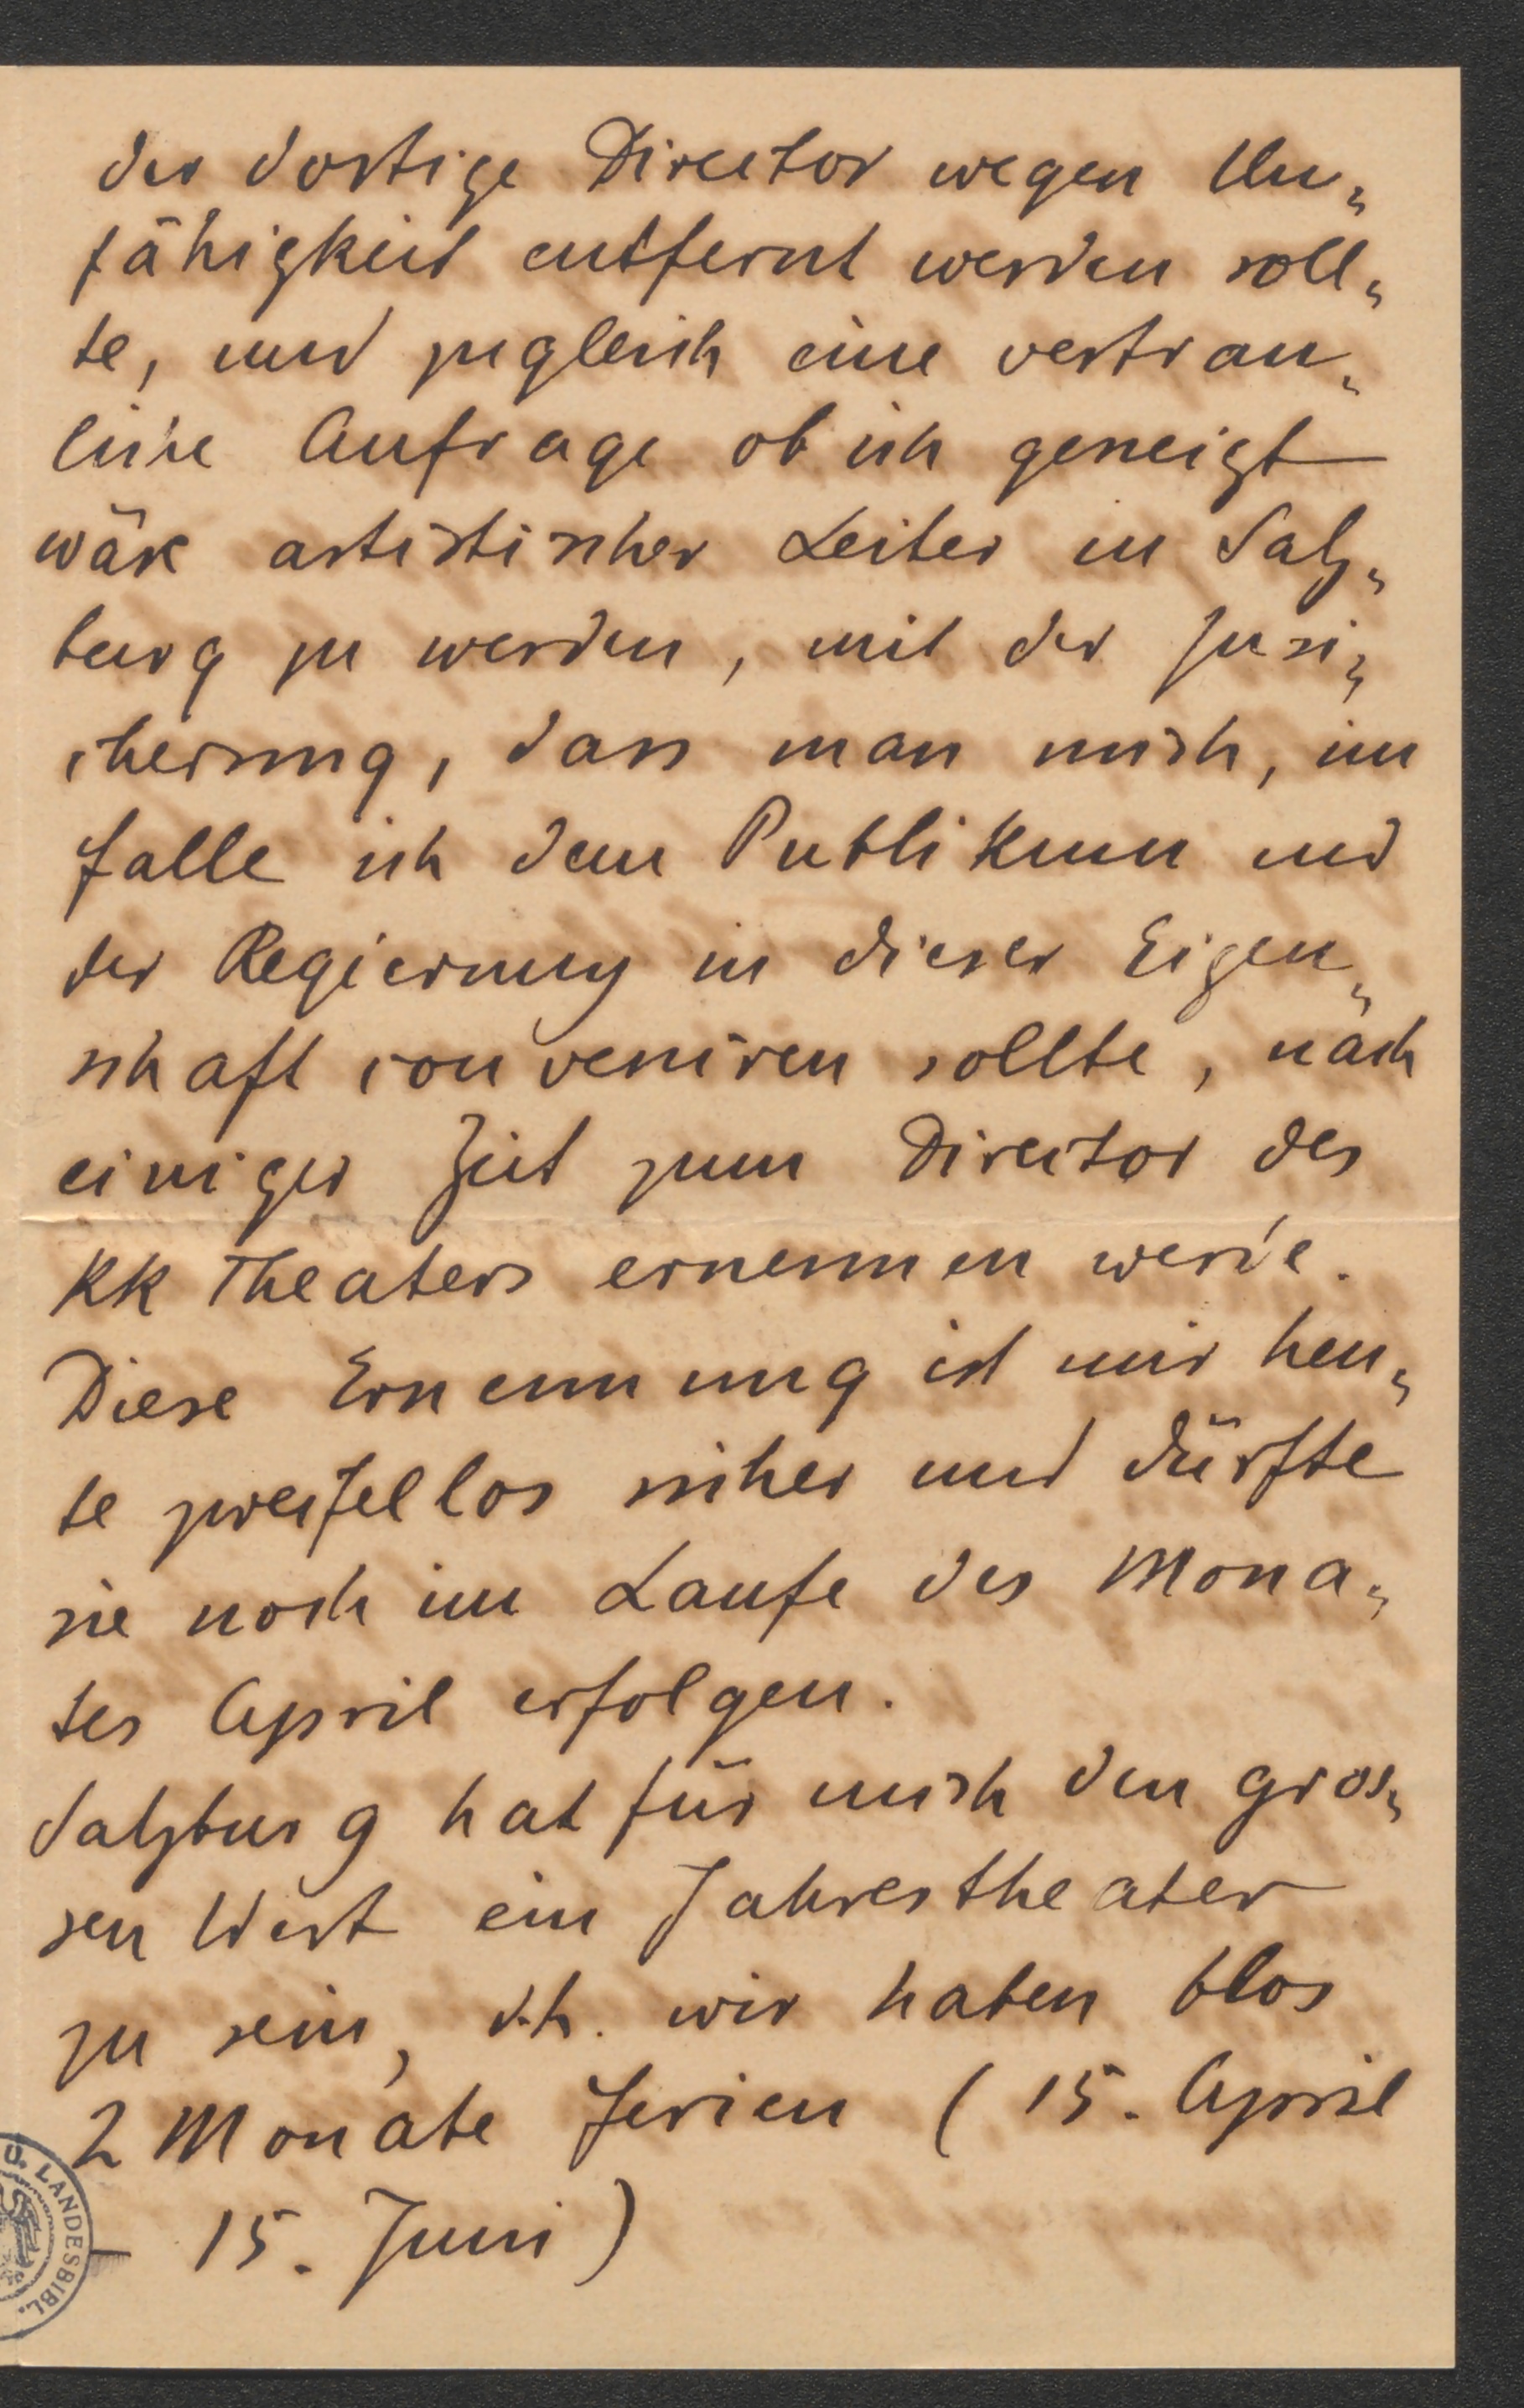 der dortige Director wegen Un„
fähigkeit entfernt werden soll„
te, und zugleich eine vertrau„
liche Anfrage ob ich geneigt
wäre artistischer Leiter in Salz„
burg zu werden, mit der Zusi„
cherung, dass man mich, im
Falle ich dem Publikum und
der Regierung in dieser Eigen„
schaft conveniren sollte, nach
einiger Zeit zum Director des
KK Theaters ernennen werde.
Diese Ernennung ist mir heu„
te zweifellos sicher und dürfte
sie noch im Laufe des Mona„
tes April erfolgen.
Salzburg hat für mich den gros„
sen Wert ein Jahrestheater
zu sein, d.h. wir haben blos
2 Monate Ferien (15. April
– 15. Juni)
U. LANDESBIBL.